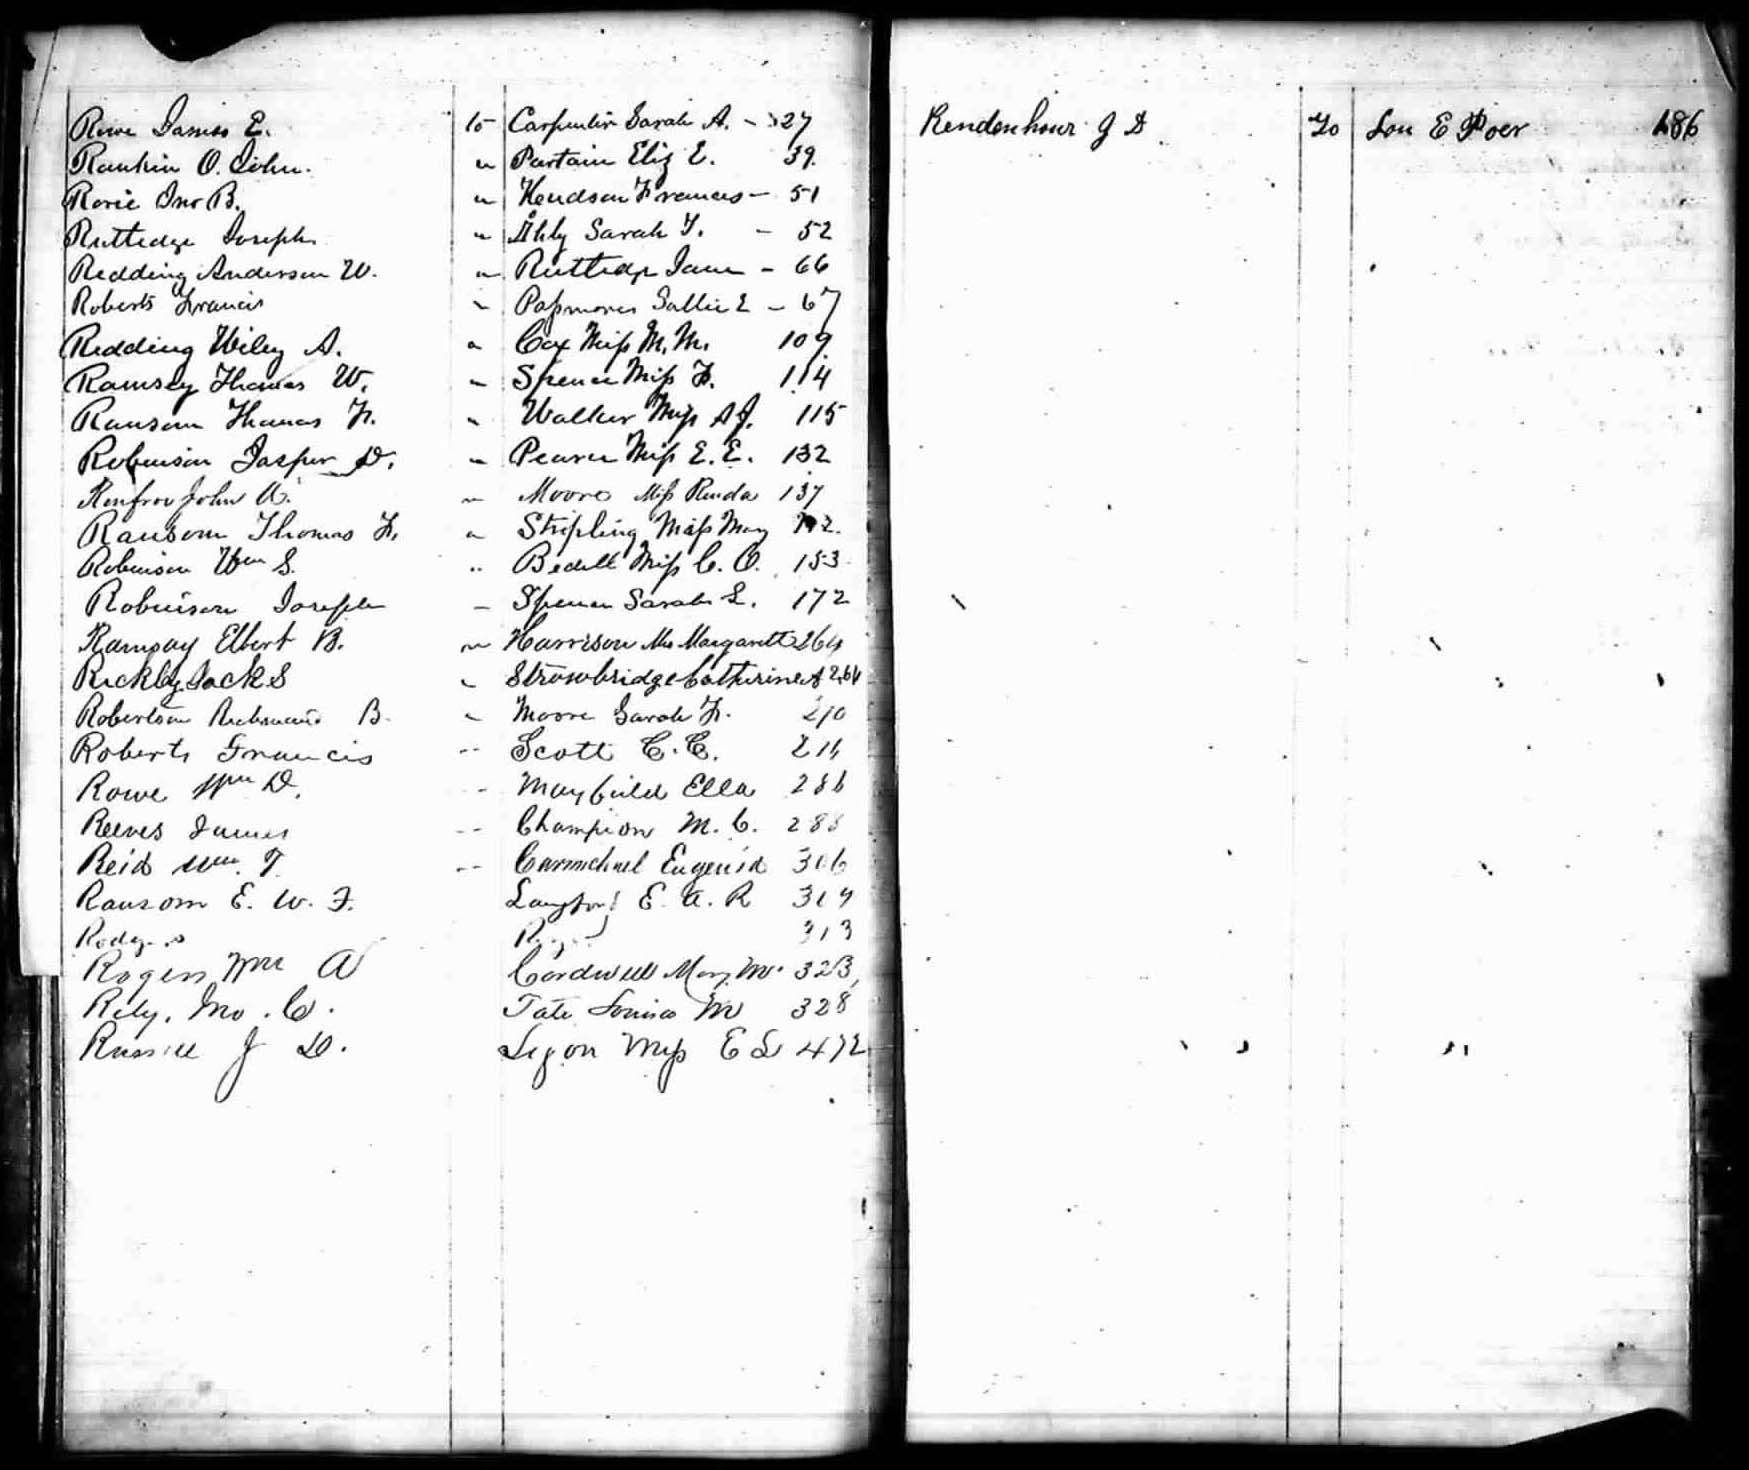 Rowe James E. to Carpenter Sarah A. - 327
Rankin O. John. " Partain Eliz E. 39.
Rorie Jno B. " Hendson Frances - 51
Ruttedge Joseph " Sarah - 52
Redding Anderson W. " Ruttedge Jane - 66
Roberts Francis " Passmores Sallie E - 67
Redding Wiley A. " Cox Miss M. M. 109
Ramsey Thomas W. " Spence Miss F. 114
Ransom Thomas F. " Walker Miss A J. 115
Robinson Jasper D. " Pearce Miss E. E. 132
Renfroe John " Moore Miss Rinda 137
Ransom Thomas F. " Stripling Miss May
Robinson Wm S. " Bedell Miss C. O. 153
Robinson Joseph " Spence Sarah L. 172
Ramsay Elbert B. " Harrison Mrs Margarett 264
Rickby Jack S " Strowbridge Catherine A 264
Robertson B. " Moore Sarah F. 270
Roberts Francis " Scott C. C.
Rowe Wm D. " Mayfield Ella 286
Reeves James " Champion M. C. 288
Reid Wm. T. " Carmichael Eugenia 306
Ransom E. W. F. Langford E. A. R 309
Rodgers 313
Rogers Wm A Cardwell Mary M. 323
Rily, Jno. C. Tate Louisa M 328
Russell J D. Ligon Miss E L 472
Rendenhour J D To Lou E Poer 486